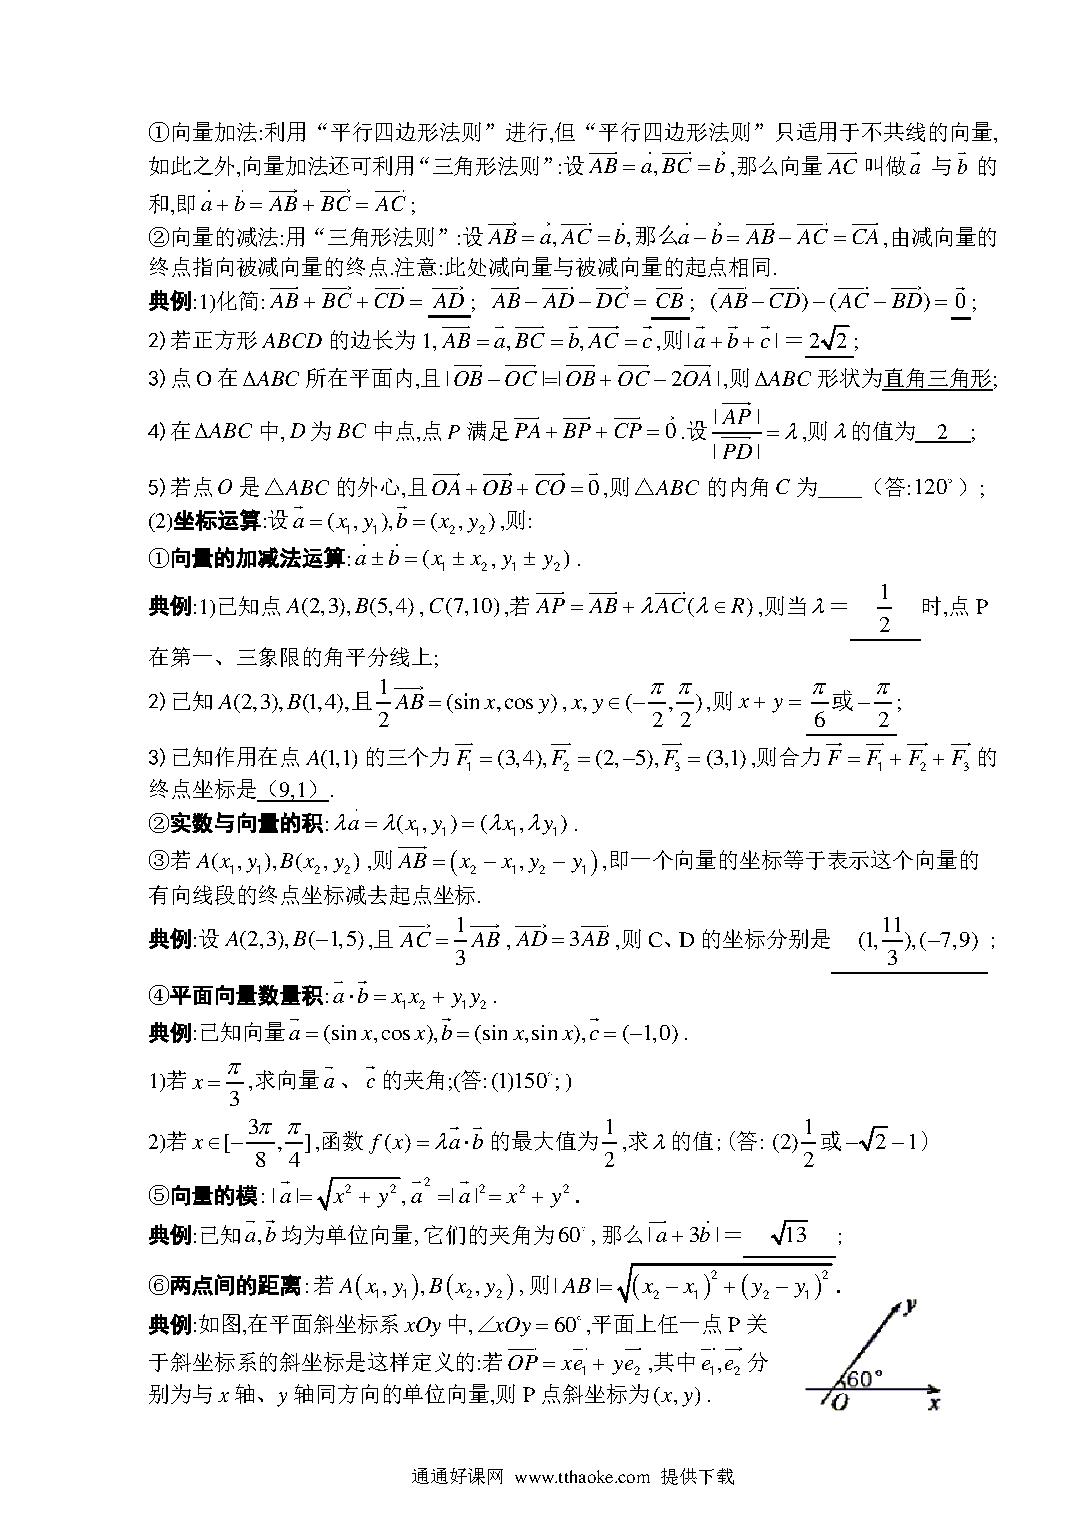 ①向量加法:利用“平行四边形法则”进行,但“平行四边形法则”只适用于不共线的向量,
如此之外,向量加法还可利用“三角形法则”:设 $\overrightarrow{AB}=\vec{a},\overrightarrow{BC}=\vec{b}$,那么向量 $\overrightarrow{AC}$ 叫做 $\vec{a}$ 与 $\vec{b}$ 的
和,即 $\vec{a}+\vec{b}=\overrightarrow{AB}+\overrightarrow{BC}=\overrightarrow{AC}$;
②向量的减法:用“三角形法则”:设 $\overrightarrow{AB}=\vec{a},\overrightarrow{AC}=\vec{b}$,那么 $\vec{a}-\vec{b}=\overrightarrow{AB}-\overrightarrow{AC}=\overrightarrow{CA}$,由减向量的
终点指向被减向量的终点.注意:此处减向量与被减向量的起点相同.
典例:1)化简: $\overrightarrow{AB}+\overrightarrow{BC}+\overrightarrow{CD}=\overrightarrow{AD}$; $\overrightarrow{AB}-\overrightarrow{AD}-\overrightarrow{DC}=\overrightarrow{CB}$; $(\overrightarrow{AB}-\overrightarrow{CD})-(\overrightarrow{AC}-\overrightarrow{BD})=\vec{0}$;
2)若正方形 $ABCD$ 的边长为 1, $\overrightarrow{AB}=\vec{a},\overrightarrow{BC}=\vec{b},\overrightarrow{AC}=\vec{c}$,则 $|\vec{a}+\vec{b}+\vec{c}|=2\sqrt{2}$;
3)点 O 在 $\Delta ABC$ 所在平面内,且 $|\overrightarrow{OB}-\overrightarrow{OC}|=|\overrightarrow{OB}+\overrightarrow{OC}-2\overrightarrow{OA}|$,则 $\Delta ABC$ 形状为直角三角形;
4)在 $\Delta ABC$ 中, $D$ 为 $BC$ 中点,点 $P$ 满足 $\overrightarrow{PA}+\overrightarrow{BP}+\overrightarrow{CP}=\vec{0}$.设 $\frac{|\overrightarrow{AP}|}{|\overrightarrow{PD}|}=\lambda$,则 $\lambda$ 的值为 2 ;
5)若点 $O$ 是 $\triangle ABC$ 的外心,且 $\overrightarrow{OA}+\overrightarrow{OB}+\overrightarrow{CO}=\vec{0}$,则 $\triangle ABC$ 的内角 $C$ 为____(答:$120^\circ$);
(2)坐标运算:设 $\vec{a}=(x_1,y_1),\vec{b}=(x_2,y_2)$,则:
①向量的加减法运算: $\vec{a}\pm\vec{b}=(x_1\pm x_2,y_1\pm y_2)$.
典例:1)已知点 $A(2,3),B(5,4),C(7,10)$,若 $\overrightarrow{AP}=\overrightarrow{AB}+\lambda\overrightarrow{AC}(\lambda\in R)$,则当 $\lambda=\frac{1}{2}$ 时,点 P
在第一、三象限的角平分线上;
2)已知 $A(2,3),B(1,4)$,且 $\frac{1}{2}\overrightarrow{AB}=(\sin x,\cos y),x,y\in(-\frac{\pi}{2},\frac{\pi}{2})$,则 $x+y=\frac{\pi}{6}$ 或 $-\frac{\pi}{2}$;
3)已知作用在点 $A(1,1)$ 的三个力 $\overrightarrow{F_1}=(3,4),\overrightarrow{F_2}=(2,-5),\overrightarrow{F_3}=(3,1)$,则合力 $\overrightarrow{F}=\overrightarrow{F_1}+\overrightarrow{F_2}+\overrightarrow{F_3}$ 的
终点坐标是(9,1).
②实数与向量的积: $\lambda\vec{a}=\lambda(x_1,y_1)=(\lambda x_1,\lambda y_1)$.
③若 $A(x_1,y_1),B(x_2,y_2)$,则 $\overrightarrow{AB}=(x_2-x_1,y_2-y_1)$,即一个向量的坐标等于表示这个向量的
有向线段的终点坐标减去起点坐标.
典例:设 $A(2,3),B(-1,5)$,且 $\overrightarrow{AC}=\frac{1}{3}\overrightarrow{AB},\overrightarrow{AD}=3\overrightarrow{AB}$,则 C、D 的坐标分别是 $(1,\frac{11}{3}),(-7,9)$ ;
④平面向量数量积: $\vec{a}\cdot\vec{b}=x_1x_2+y_1y_2$.
典例:已知向量 $\vec{a}=(\sin x,\cos x),\vec{b}=(\sin x,\sin x),\vec{c}=(-1,0)$.
1)若 $x=\frac{\pi}{3}$,求向量 $\vec{a}$、$\vec{c}$ 的夹角;(答:(1)$150^\circ$;)
2)若 $x\in[-\frac{3\pi}{8},\frac{\pi}{4}]$,函数 $f(x)=\lambda\vec{a}\cdot\vec{b}$ 的最大值为 $\frac{1}{2}$,求 $\lambda$ 的值;(答: (2) $\frac{1}{2}$ 或 $-\sqrt{2}-1$)
⑤向量的模: $|\vec{a}|=\sqrt{x^2+y^2},\vec{a}^2=|\vec{a}|^2=x^2+y^2$.
典例:已知 $\vec{a},\vec{b}$ 均为单位向量,它们的夹角为 $60^\circ$,那么 $|\vec{a}+3\vec{b}|=\sqrt{13}$ ;
⑥两点间的距离:若 $A(x_1,y_1),B(x_2,y_2)$,则 $|AB|=\sqrt{(x_2-x_1)^2+(y_2-y_1)^2}$.
典例:如图,在平面斜坐标系 $xOy$ 中,$\angle xOy=60^\circ$,平面上任一点 P 关
于斜坐标系的斜坐标是这样定义的:若 $\overrightarrow{OP}=x\vec{e_1}+y\vec{e_2}$,其中 $\vec{e_1},\vec{e_2}$ 分
别为与 $x$ 轴、$y$ 轴同方向的单位向量,则 P 点斜坐标为 $(x,y)$.
y
60°
O
x
通通好课网 www.tthaoke.com 提供下载